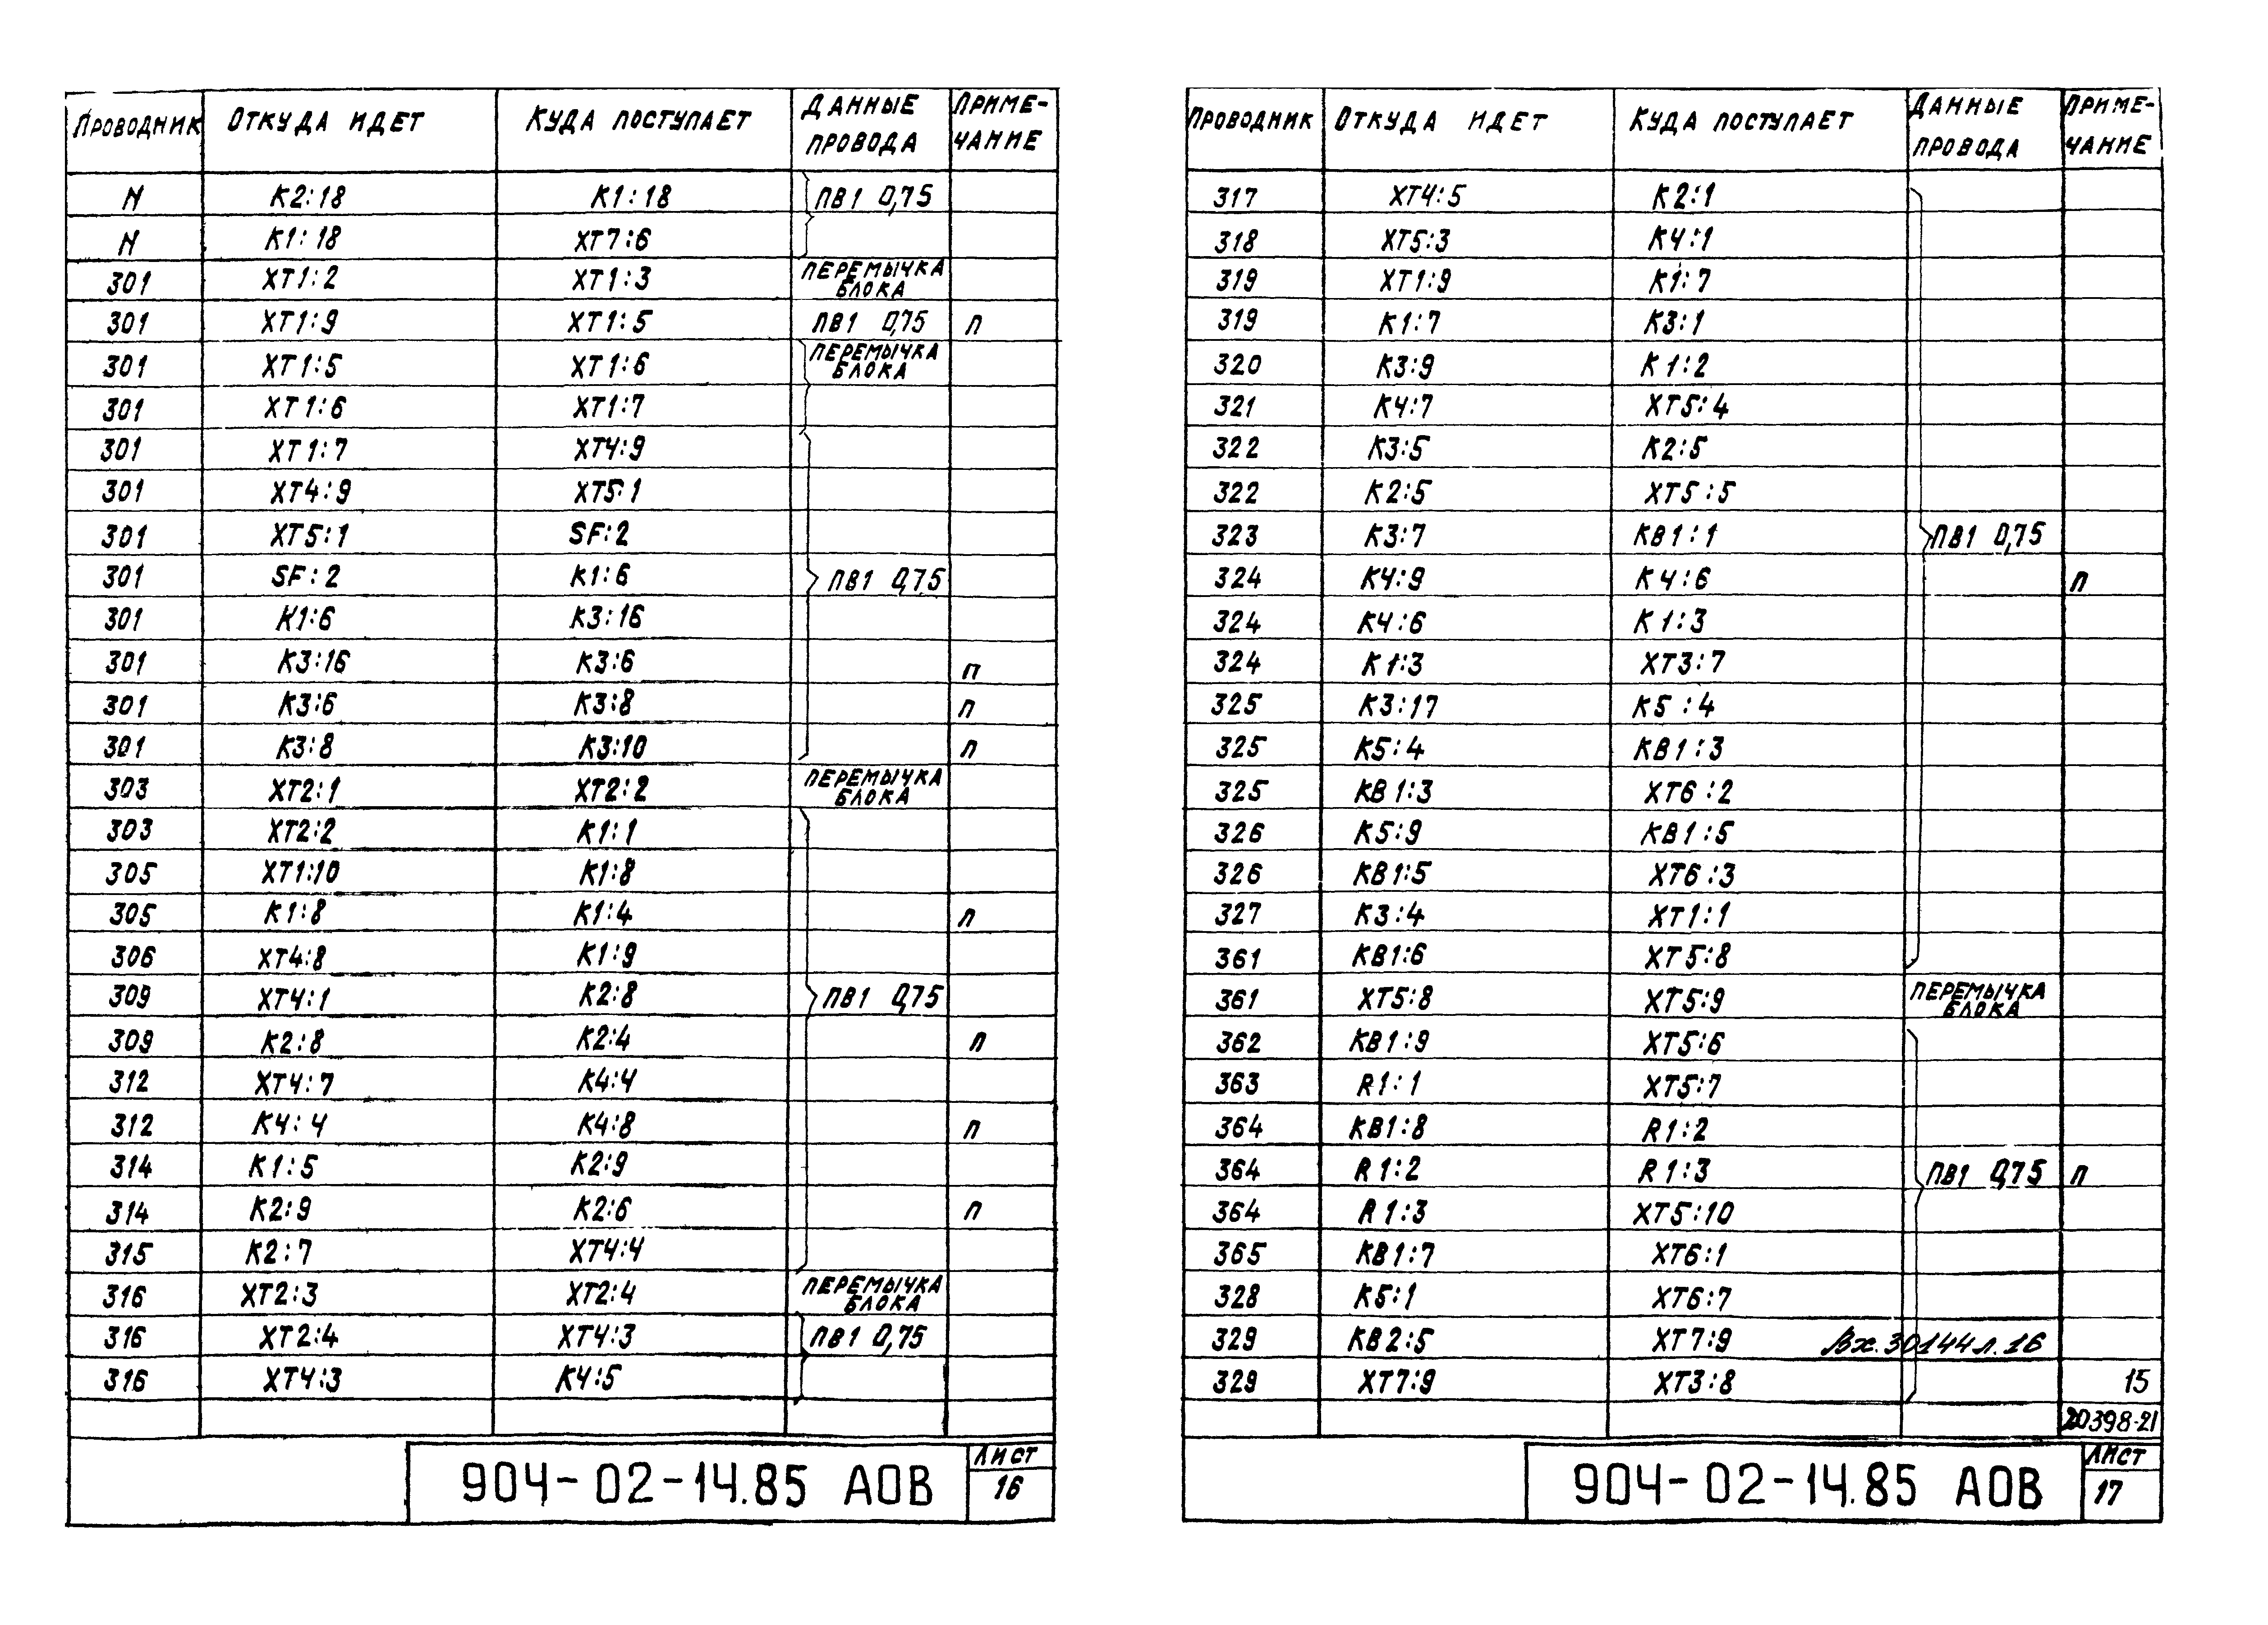 Проводник Откуда идет Куда поступает Данные провода Приме-чание
N К2:18 К1:18 ПВ1 0,75
N К1:18 ХТ7:6
301 ХТ1:2 ХТ1:3 Перемычка блока
301 ХТ1:9 ХТ1:5 ПВ1 0,75 п
301 ХТ1:5 ХТ1:6 Перемычка блока
301 ХТ1:6 ХТ1:7
301 ХТ1:7 ХТ4:9
301 ХТ4:9 ХТ5:1
301 ХТ5:1 SF:2
301 SF:2 К1:6 ПВ1 0,75
301 К1:6 К3:16
301 К3:16 К3:6 п
301 К3:6 К3:8 п
301 К3:8 К3:10 п
303 ХТ2:1 ХТ2:2 Перемычка блока
303 ХТ2:2 К1:1
305 ХТ1:10 К1:8
305 К1:8 К1:4 п
306 ХТ4:8 К1:9
309 ХТ4:1 К2:8 ПВ1 0,75
309 К2:8 К2:4 п
312 ХТ4:7 К4:4
312 К4:4 К4:8 п
314 К1:5 К2:9
314 К2:9 К2:6 п
315 К2:7 ХТ4:4
316 ХТ2:3 ХТ2:4 Перемычка блока
316 ХТ2:4 ХТ4:3 ПВ1 0,75
316 ХТ4:3 К4:5
904-02-14.85 АОВ
Лист
16
Проводник Откуда идет Куда поступает Данные провода Приме-чание
317 ХТ4:5 К2:1
318 ХТ5:3 К4:1
319 ХТ1:9 К1:7
319 К1:7 К3:1
320 К3:9 К1:2
321 К4:7 ХТ5:4
322 К3:5 К2:5
322 К2:5 ХТ5:5
323 К3:7 КВ1:1 ПВ1 0,75
324 К4:9 К4:6 п
324 К4:6 К1:3
324 К1:3 ХТ3:7
325 К3:17 К5:4
325 К5:4 КВ1:3
325 КВ1:3 ХТ6:2
326 К5:9 КВ1:5
326 КВ1:5 ХТ6:3
327 К3:4 ХТ1:1
361 КВ1:6 ХТ5:8
361 ХТ5:8 ХТ5:9 Перемычка блока
362 КВ1:9 ХТ5:6
363 R1:1 ХТ5:7
364 КВ1:8 R1:2
364 R1:2 R1:3 ПВ1 0,75 п
364 R1:3 ХТ5:10
365 КВ1:7 ХТ6:1
328 К5:1 ХТ6:7
329 КВ2:5 ХТ7:9 Вх.30144 л.16
329 ХТ7:9 ХТ3:8 15
20398-21
904-02-14.85 АОВ
Лист
17